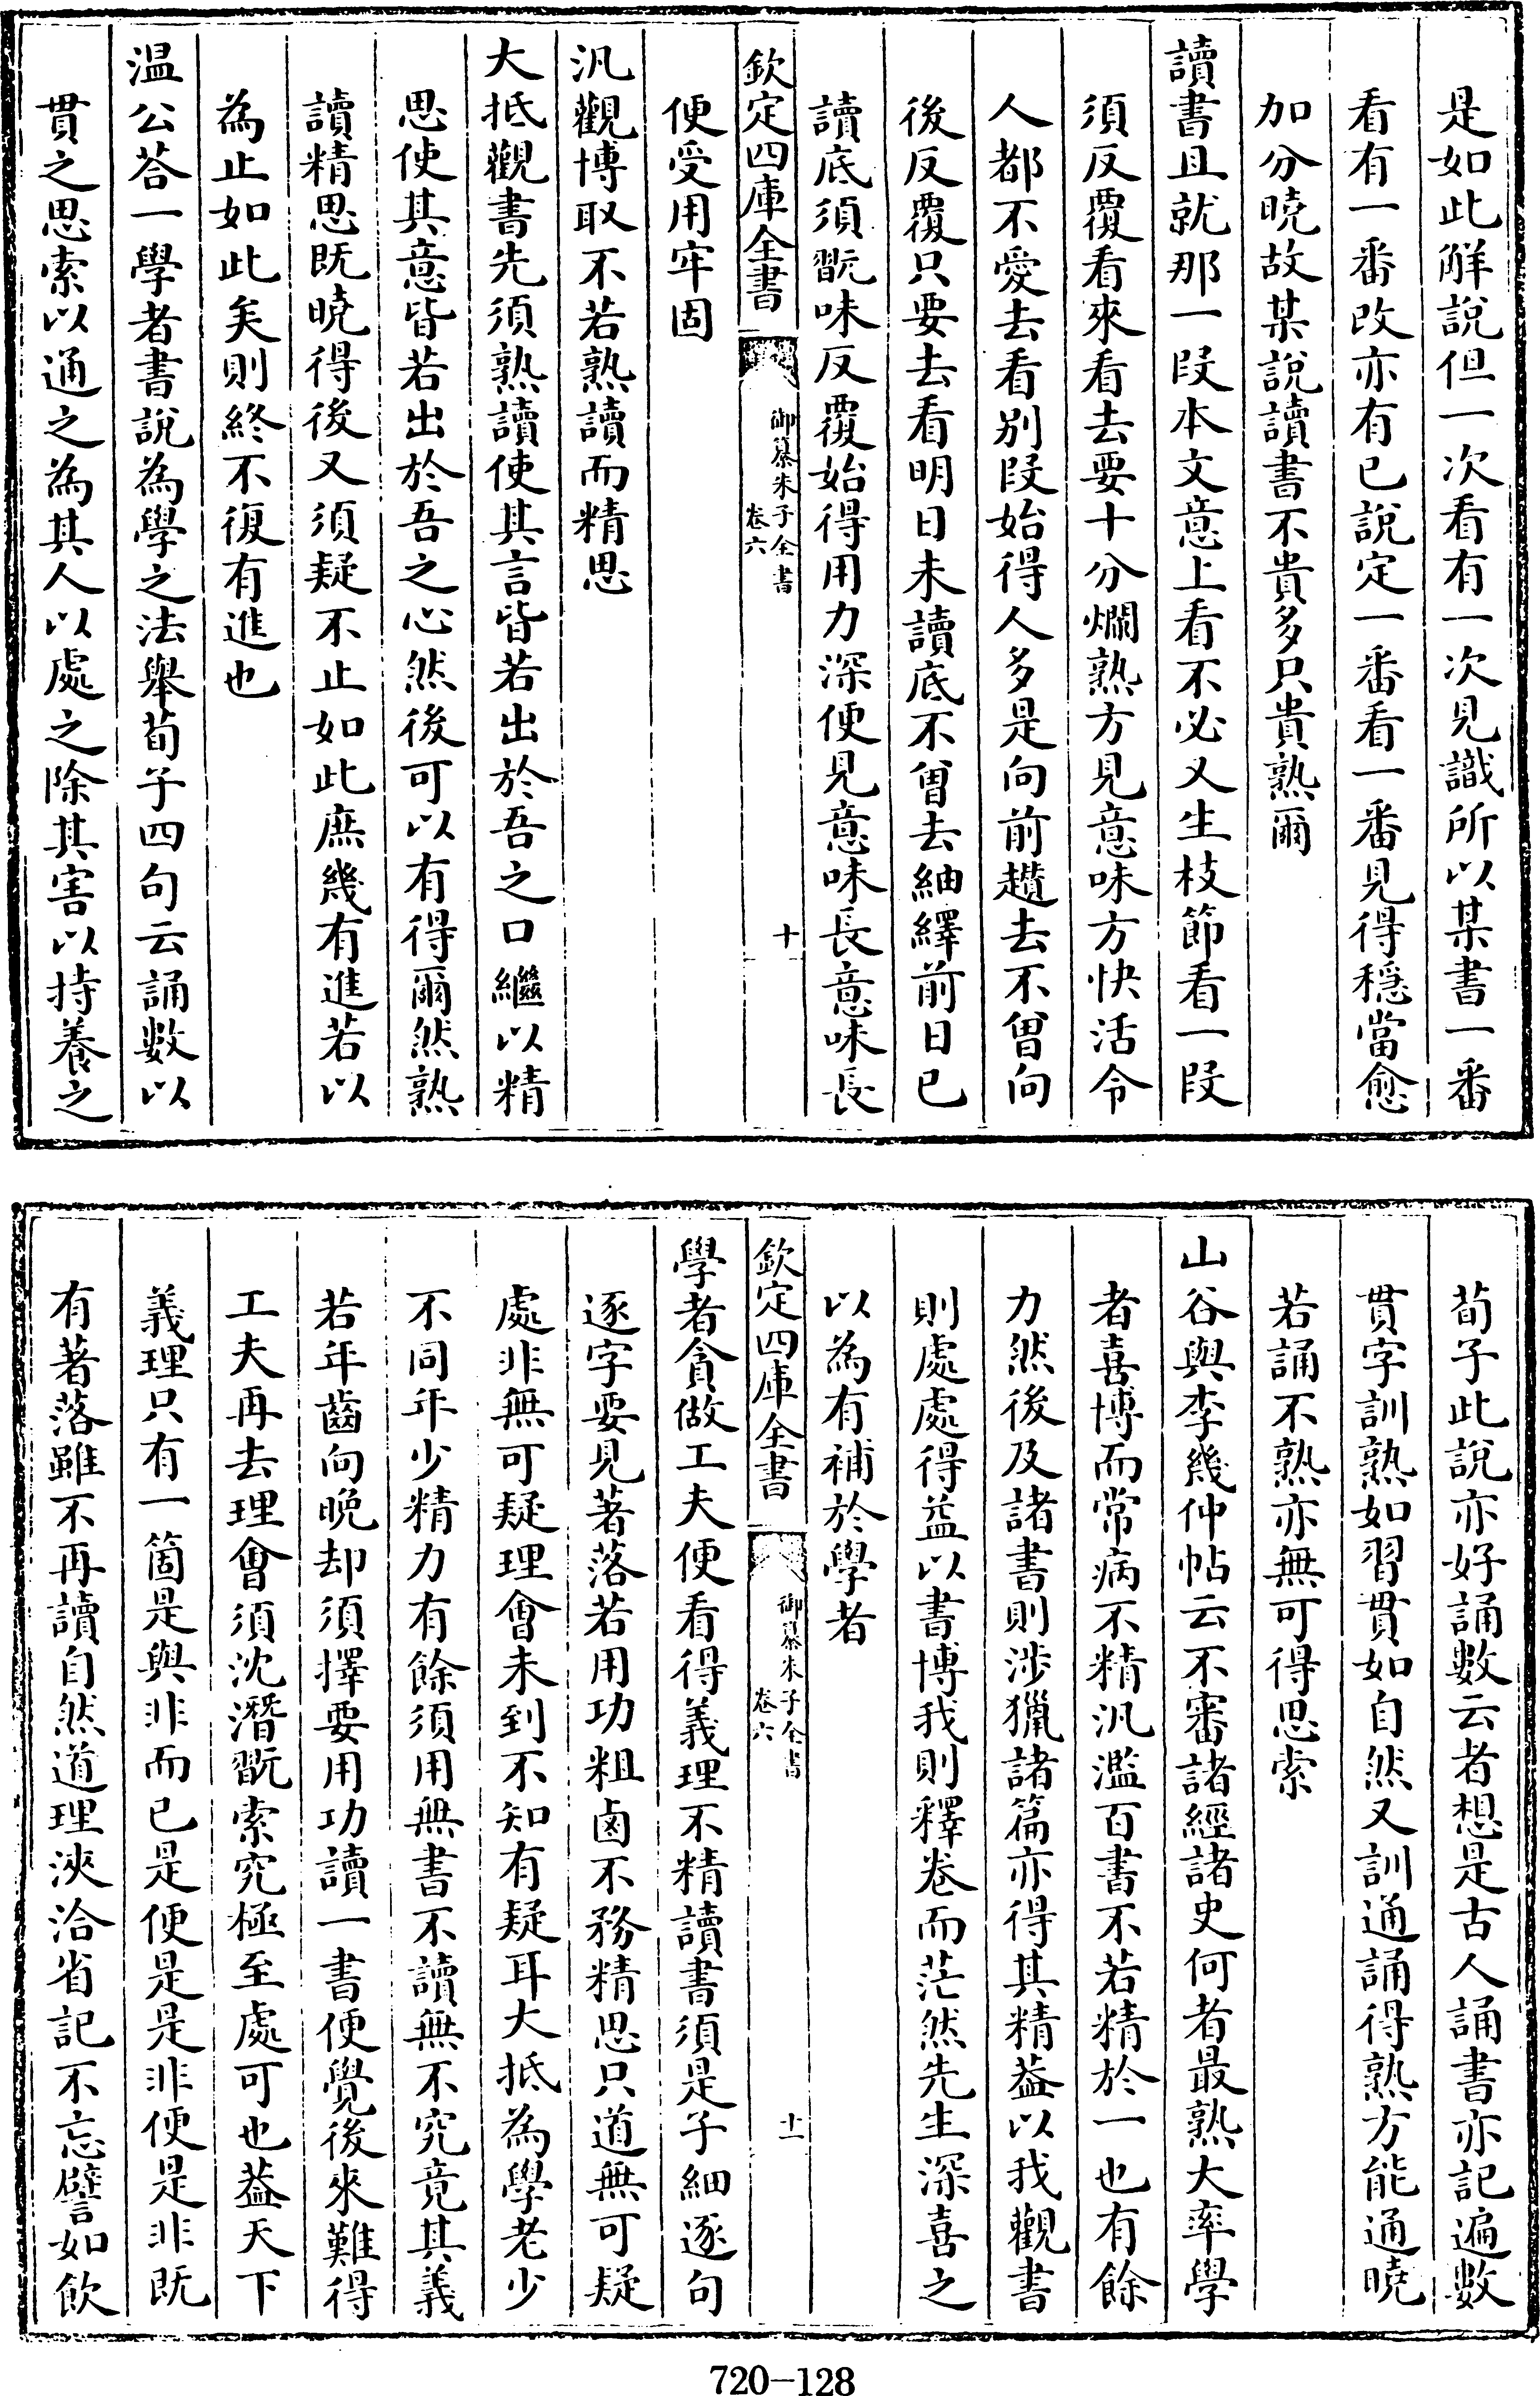 是如此解說但一次看有一次見識所以某書一番
看有一番改亦有已說定一番看一番見得穩當愈
加分曉故某說讀書不貴多只貴熟爾
讀書且就那一段本文意上看不必又生枝節看一段
須反覆看來看去要十分爛熟方見意味方快活令
人都不愛去看别段始得人多是向前趲去不曾向
後反覆只要去看明日未讀底不曾去紬繹前日已
讀底須翫味反覆始得用力深便見意味長意味長
欽定四庫全書
御纂朱子全書
卷六
十
便受用牢固
汎觀博取不若熟讀而精思
大抵觀書先須熟讀使其言皆若出於吾之口繼以精
思使其意皆若出於吾之心然後可以有得爾然熟
讀精思既曉得後又須疑不止如此庶幾有進若以
為止如此矣則終不復有進也
温公荅一學者書說為學之法舉荀子四句云誦數以
貫之思索以通之為其人以處之除其害以持養之
荀子此說亦好誦數云者想是古人誦書亦記遍數
貫字訓熟如習貫如自然又訓通誦得熟方能通曉
若誦不熟亦無可得思索
山谷與李幾仲帖云不審諸經諸史何者最熟大率學
者喜博而常病不精汎濫百書不若精於一也有餘
力然後及諸書則涉獵諸篇亦得其精葢以我觀書
則處處得益以書博我則釋卷而茫然先生深喜之
以為有補於學者
欽定四庫全書
御纂朱子全書
卷六
十一
學者貪做工夫便看得義理不精讀書須是子細逐句
逐字要見著落若用功粗鹵不務精思只道無可疑
處非無可疑理會未到不知有疑耳大抵為學老少
不同年少精力有餘須用無書不讀無不究竟其義
若年齒向晚却須擇要用功讀一書便覺後來難得
工夫再去理會須沈潛翫索究極至處可也葢天下
義理只有一箇是與非而已是便是是非便是非既
有著落雖不再讀自然道理浹洽省記不忘譬如飲
720-128